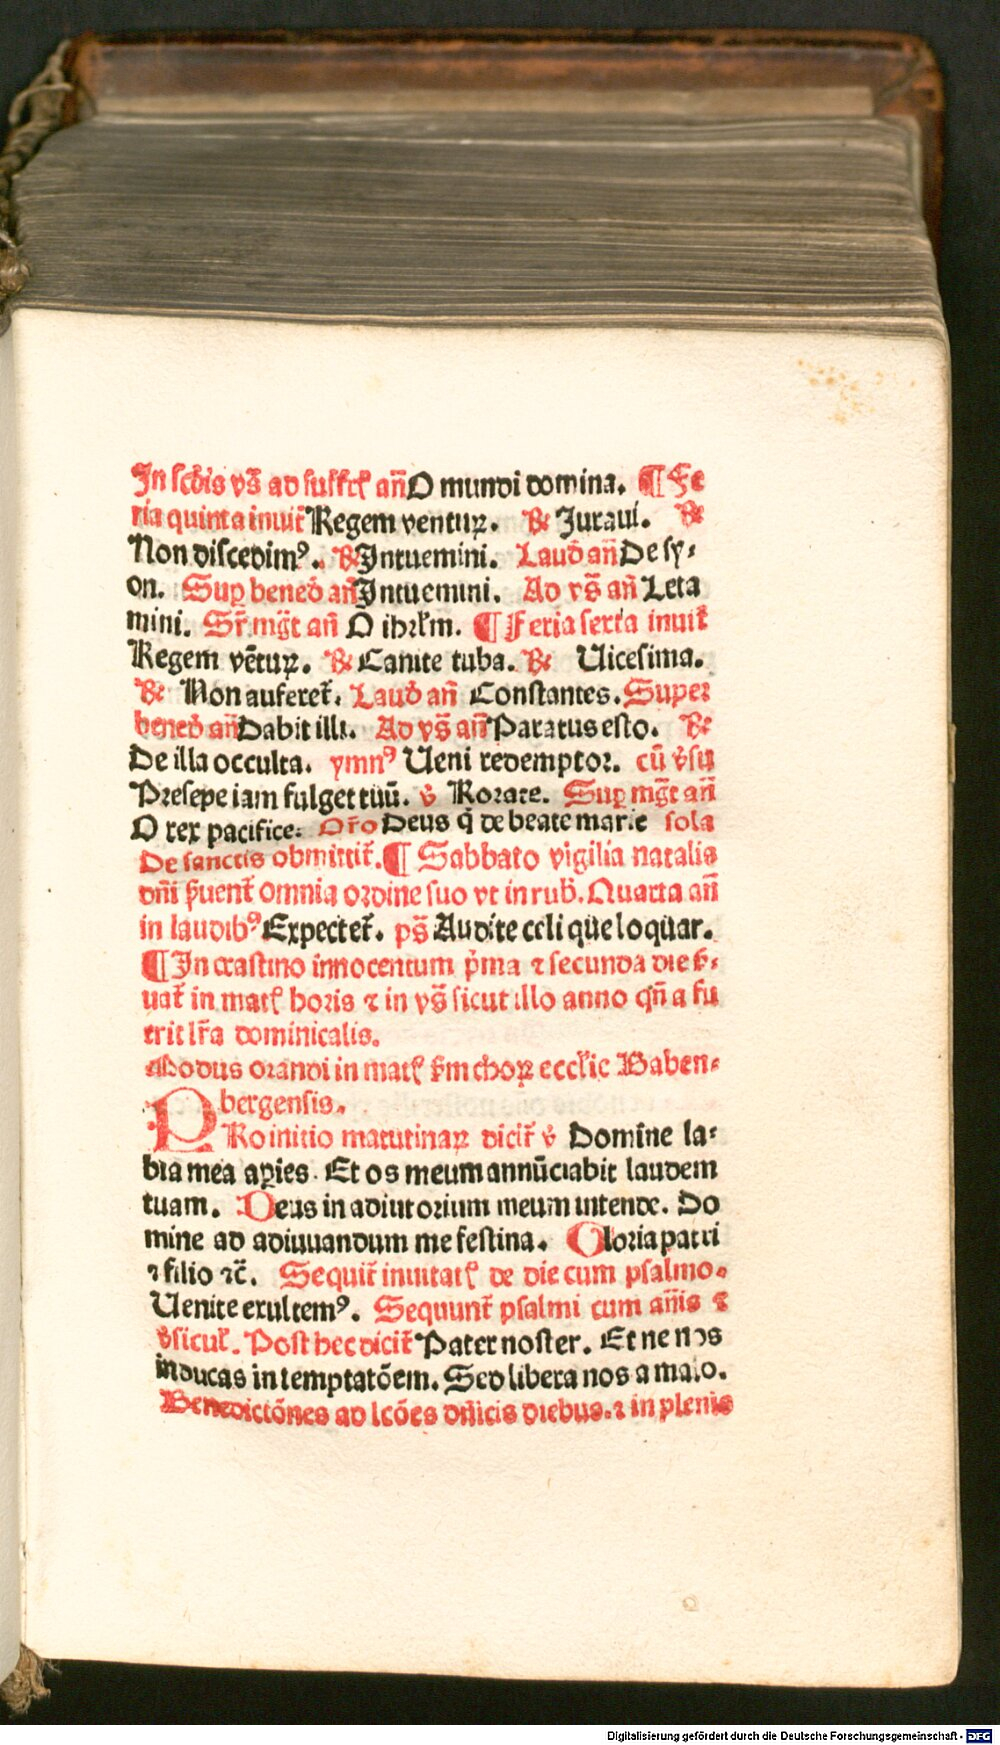 In scd̄is vs̄ ad suffrꝭ an̄ O mundi domina. ¶ Fe
ria quinta inuit̄ Regem ventuꝝ. ℟ Juraui. ℟
Non discedimꝰ. ℟ Intuemini. Laud̄ an̄ De sy⸗
on. Suꝑ bened̄ an̄ Intuemini. Ad vs̄ an̄ Leta
mini. Sr̄ mḡt an̄ O ihrl̄m. ¶ Feria sexta inuit̄
Regem vētuꝝ. ℟ Canite tuba. ℟ Uicesima.
℟ Non auferet̄. Laud̄ an̄ Constantes. Super
bened̄ an̄ Dabit illi. Ad vs̄ an̄ Paratus esto. ℟
De illa occulta. ymnꝰ Ueni redemptor. cū v̄su
Presepe iam fulget tuū. v̄ Rorate. Suꝑ mḡt an̄
O rex pacifice. Or̄o Deus q̄ de beate marie sola
De sanctis obmittit̄. ¶ Sabbato vigilia natalis
dn̄i p̄uent̄ omnia ordine suo vt in rub̄. Quarta an̄
in laudibꝰ Expectet̄. ps̄ Audite celi que loquar.
¶ In crastino innocentum p̄ma ⁊ secunda die s̄⸗
uat̄ in matꝭ horis ⁊ in vs̄ sicut illo anno qn̄ a fu
erit lr̄a dominicalis.
Modus orandi in matꝭ s̄m choꝝ eccl̄ie Baben⸗
bergensis.
PRo initio matutinaꝝ dicit̄ v̄ Domine la⸗
bia mea aꝑies. Et os meum annūciabit laudem
tuam. Deus in adiutorium meum intende. Do
mine ad adiuuandum me festina. Gloria patri
⁊ filio ⁊c̄. Sequit̄ inuitatꝭ de die cum psalmo.
Uenite exultemꝰ. Sequunt̄ psalmi cum an̄is ⁊
v̄sicul̄. Post hec dicit̄ Pater noster. Et ne nos
inducas in temptatōem. Sed libera nos a malo.
Benedictōnes ad lcōes dn̄icis diebus. ⁊ in plenis
Digitalisierung gefördert durch die Deutsche Forschungsgemeinschaft - DFG